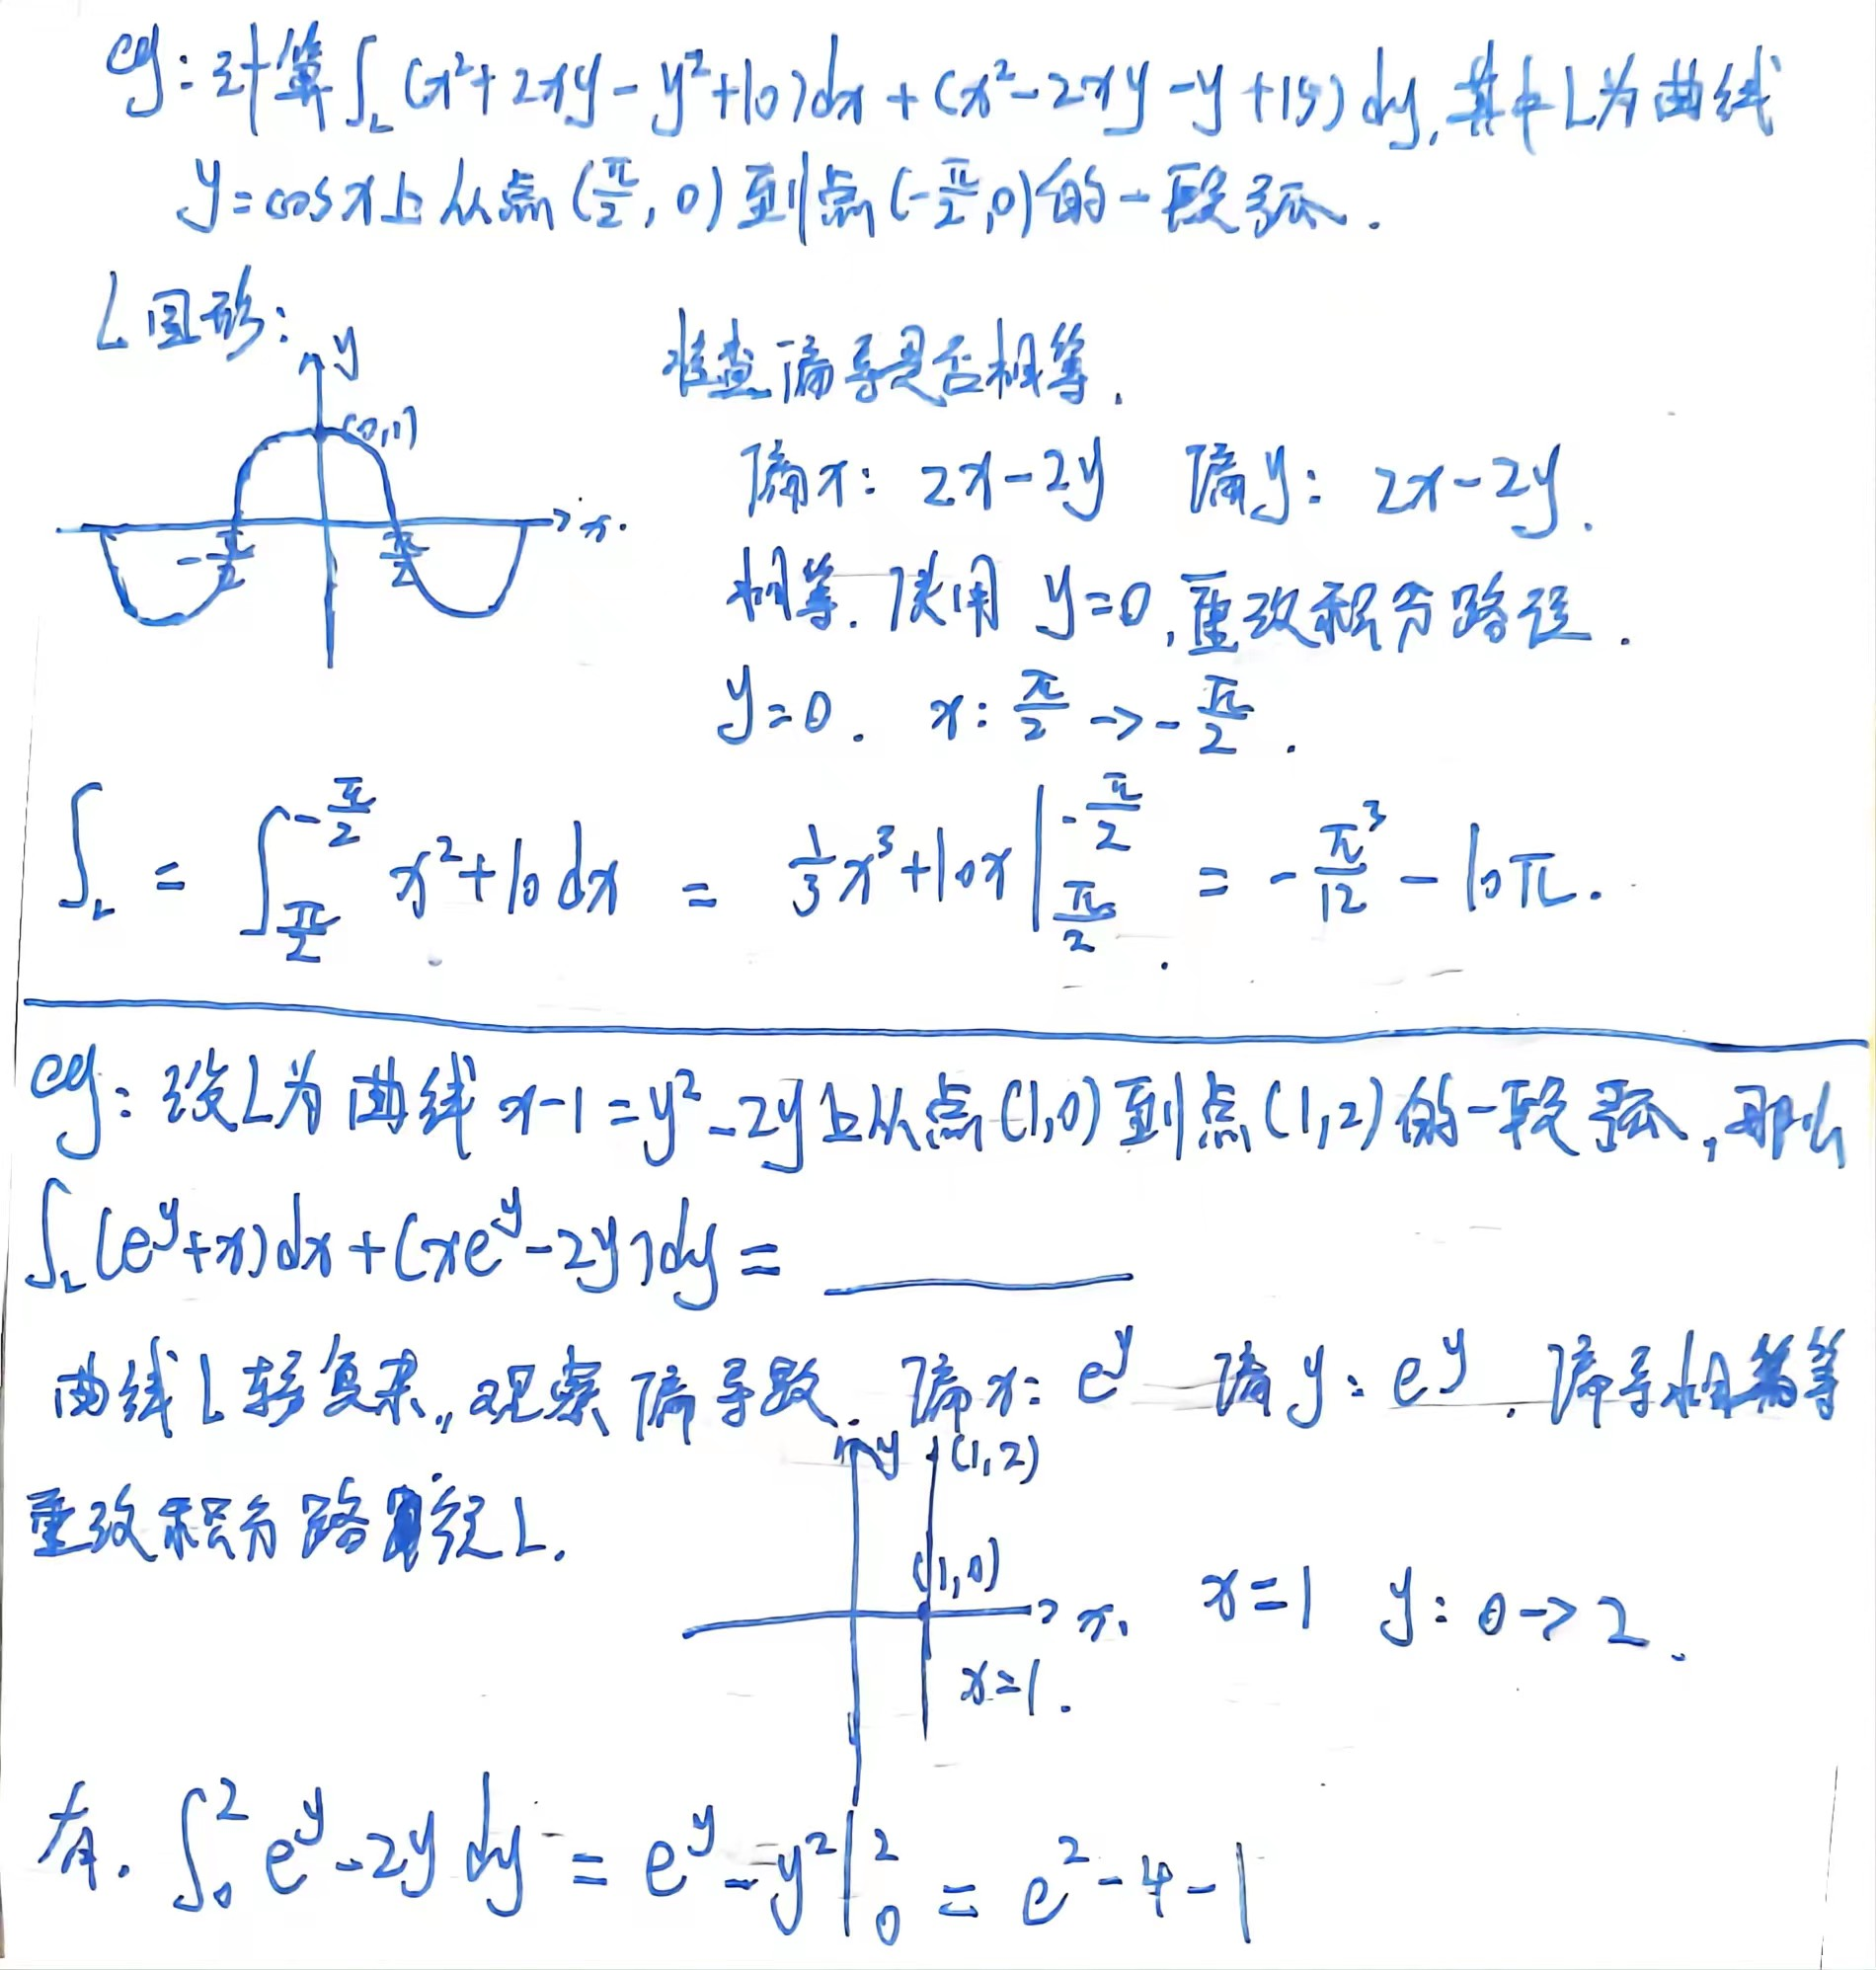 eg:计算∫_L (x²+2xy-y²+10)dx+(x²-2xy-y+15)dy,其中L为曲线
y=cosx上从点(π/2,0)到点(-π/2,0)的一段弧.
L图形:
y
(0,1)
x.
-π/2
π/2
检查偏导是否相等.
偏x: 2x-2y 偏y: 2x-2y.
相等.使用 y=0,重改积分路径.
y=0. x: π/2 -> -π/2.
∫_L = ∫_{π/2}^{-π/2} x²+10dx = 1/3x³+10x|_{π/2}^{-π/2} = -π³/12-10π.
eg:设L为曲线x-1=y²-2y上从点(1,0)到点(1,2)的一段弧,那么
∫_L (e^y+x)dx+(xe^y-2y)dy=
曲线L较复杂,观察偏导数. 偏x: e^y 偏y: e^y. 偏导相等
重改积分路径L.
y
(1,2)
(1,0)
x.
x=1.
x=1 y: 0->2.
有. ∫_0^2 e^y-2y dy = e^y-y²|_0^2 = e²-4-1